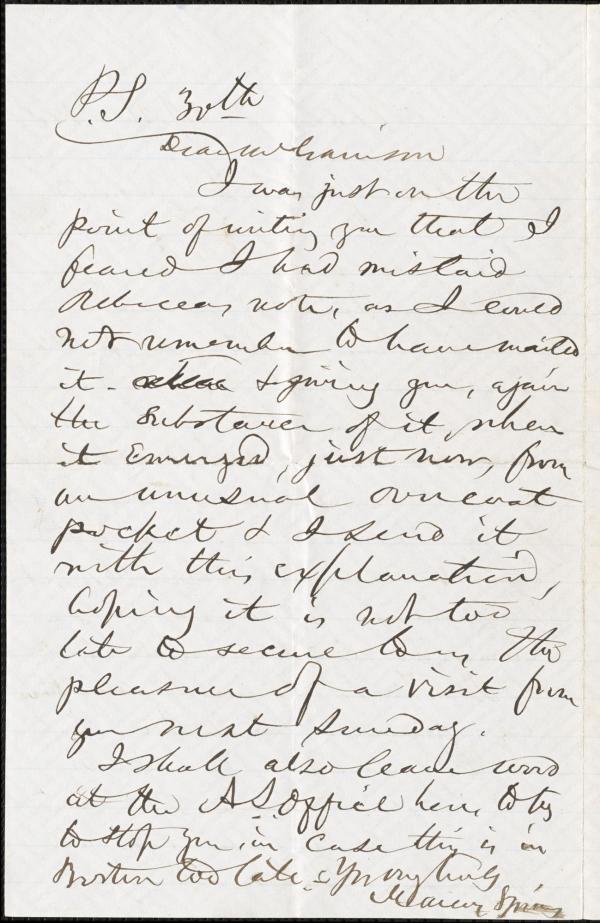 P.S. 30th
Dear Mr Garrison
I was just on the
point of writing you that I
feared I had mislaid
Rebeccas note, as I could
not remember to have mailed
it - & giving you, again
the substance of it, when
it emerged, just now, from
an unusual overcoat
pocket & I send it
with this explanation,
hoping it is not too
late to secure to us the
pleasure of a visit from
you next Sunday.
I shall also leave word
at the A S Office here, to try
to stop you, in case this is in
Boston too late. Yours truly
Marcus Spring